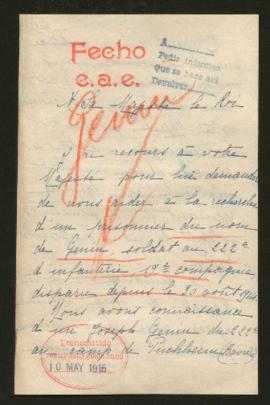 Fecho
e.a.e.
A
Pedir informes
Que se hace aquí
Devolver
A Sa Majesté le Roi
J'ai recours à votre
Majesté pour lui demander
de nous aider à la recherche
d'un prisonnier du nom
de Genin, soldat au 222e
d'infanterie 18e compagnie
disparu depuis le 30 août 1914
Nous avons connaissance
d'un Joseph Genin du 222e
au camp de Puchheim (Bavière)
Transmitido
10 MAY 1916
Genin